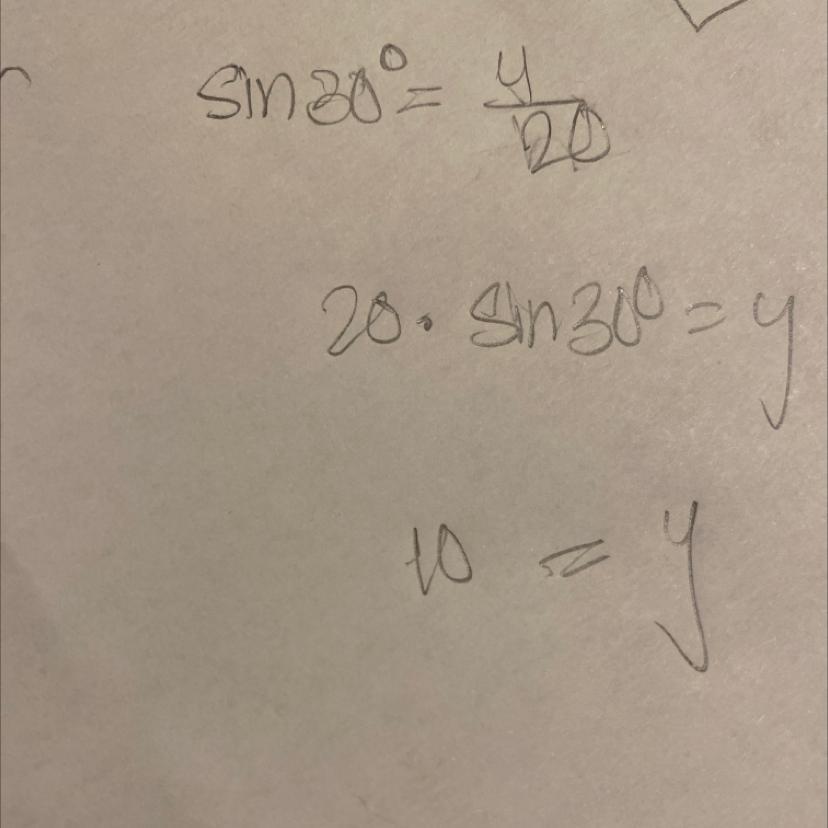 sin30° = y/20
20 · sin30° = y
10 = y